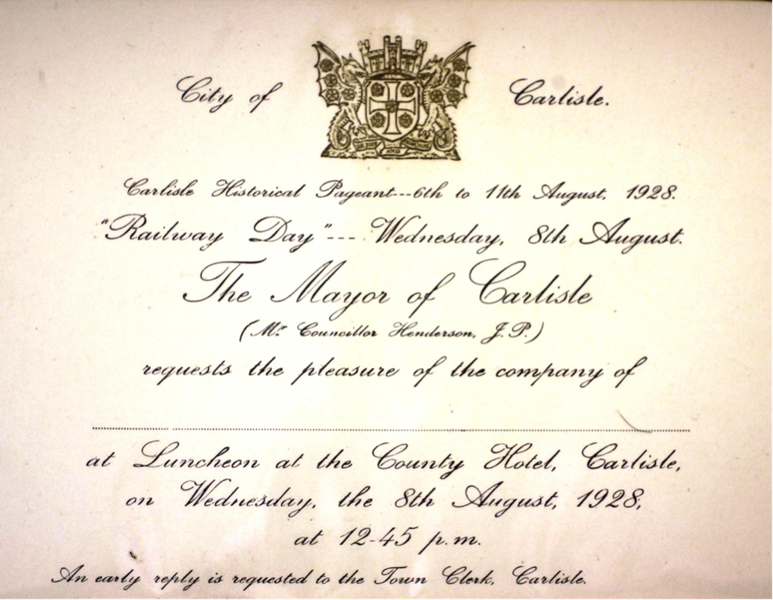 City of Carlisle.
Carlisle Historical Pageant---6th to 11th August, 1928.
"Railway Day"--- Wednesday, 8th August.
The Mayor of Carlisle
(Mr. Councillor Henderson, J.P.)
requests the pleasure of the company of
at Luncheon at the County Hotel, Carlisle,
on Wednesday, the 8th August, 1928,
at 12-45 p.m.
An early reply is requested to the Town Clerk, Carlisle.